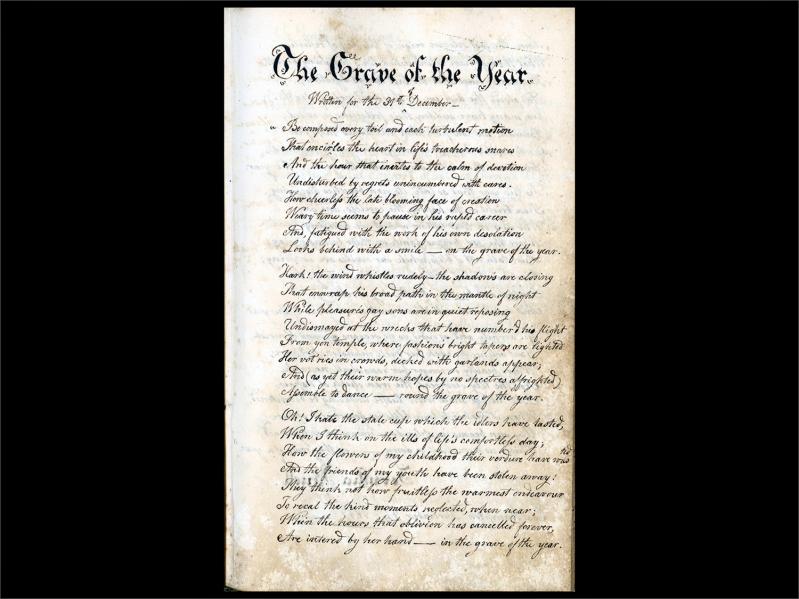 The Grave of the Year.
Written for the 31st of December—
Be composed every toil and each turbulent motion
That encircles the heart in life's treacherous snares
And the hour that invites to the calm of devotion
Undisturbed by regrets unincumbered with cares.
How cheerless the late blooming face of creation
Weary time seems to pause in his rapid career
And, fatigued with the work of his own desolation
Looks behind with a smile — on the grave of the year.
Hark! the wind whistles rudely – the shadows are closing
That enwrap his broad path in the mantle of night
While pleasure's gay sons are in quiet reposing
Undismayed at the wrecks that have number'd his flight
From yon temple, where fashion's bright tapers are lighted
Her vot'ries in crowds, decked with garlands appear;
And (as yet their warm hopes by no spectres affrighted)
Assemble to dance — round the grave of the year.
Oh! I hate the stale cup which the idlers have tasted,
When I think on the ills of life's comfortless day;
How the flowers of my childhood their verdure have wasted
And the friends of my youth have been stolen away!
They think not how fruitless the warmest endeavour
To recal the kind moments neglected, when near;
When the hours that oblivion has cancelled forever,
Are intered by her hand — in the grave of the year.